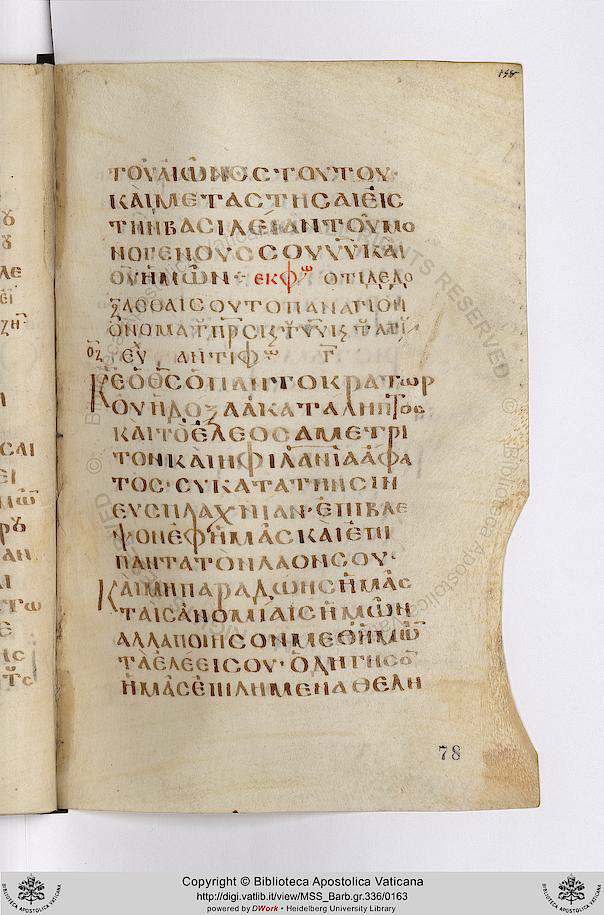 158
ΤΟΥΑΙΩΝΟΣ ΤΟΥΤΟΥ·
ΚΑΙ ΜΕΤΑΣΤΗΣΑΙ ΕΙΣ
ΤΗΝ ΒΑΣΙΛΕΙΑΝ ΤΟΥ ΜΟ
ΝΟΓΕΝΟΥΣ ΣΟΥ ΥΥ ΚΑΙ
ΘΥ ΗΜΩΝ· ΕΚΦω ΟΤΙ ΔΕΔΟ
ΞΑΣΘΑΙ ΣΟΥ ΤΟ ΠΑΝΑΓΙΟΝ
ΟΝΟΜΑ
ΕΥ ΑΝΤΙΦω Γ
ΚΕ Ο ΘΣ Ο ΠΑΝΤΟΚΡΑΤΩΡ
ΟΥ Η ΔΟΞΑ ΑΚΑΤΑΛΗΠΤΟΣ
ΚΑΙ ΤΟ ΕΛΕΟΣ ΑΜΕΤΡΙ
ΤΟΝ ΚΑΙ Η ΦΙΛΑΝΙΑ ΑΦΑ
ΤΟΣ· ΣΥ ΚΑΤΑ ΤΗΝ ΣΗΝ
ΕΥΣΠΛΑΧΝΙΑΝ· ΕΠΙΒΛΕ
ΨΟΝ ΕΦ ΗΜΑΣ ΚΑΙ ΕΠΙ
ΠΑΝΤΑ ΤΟΝ ΛΑΟΝ ΣΟΥ·
ΚΑΙ ΜΗ ΠΑΡΑΔΩΗΣ ΗΜΑΣ
ΤΑΙΣ ΑΝΟΜΙΑΙΣ ΗΜΩΝ
ΑΛΛΑ ΠΟΙΗΣΟΝ ΜΕΘ ΗΜΩ
ΤΑ ΕΛΕΕΙ ΣΟΥ· ΟΔΗΓΗΣΟ
ΗΜΑΣ ΕΠΙ ΛΗΜΕΝΑ ΘΕΛΗ
78
Copyright © Biblioteca Apostolica Vaticana
http://digi.vatlib.it/view/MSS_Barb.gr.336/0163
powered by DWork • Heidelberg University Library